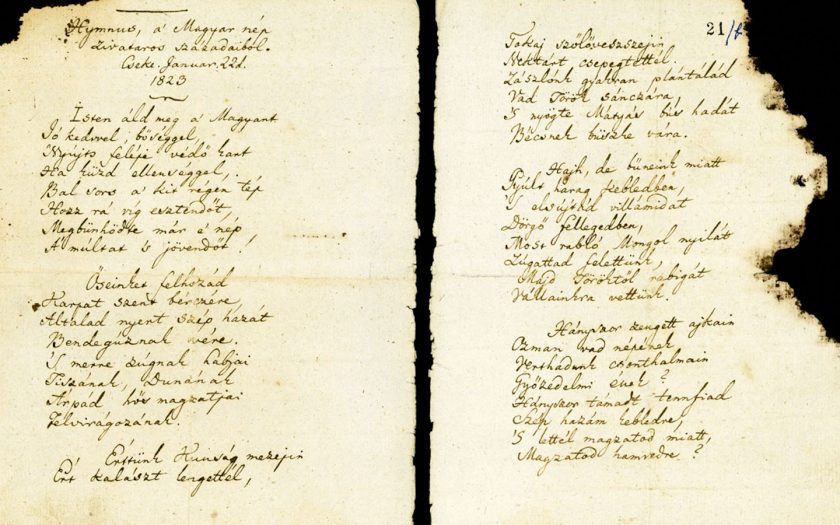 Hymnus, a' Magyar nép
zivataros századaiból.
Cseke, Januar. 22d.
1823
Isten áldd meg a' Magyart
Jó kedvvel, bőséggel,
Nyújts feléje védő kart
Ha küzd ellenséggel,
Bal sors a' kit régen tép
Hozz rá víg esztendőt,
Megbűnhődte már e' nép
A' múltat 's jövendőt!
Őseinket felhozád
Kárpát szent bérczére,
Általad nyert szép hazát
Bendegúznak vére.
'S merre zúgnak habjai
Tiszának, Dunának
Árpád hős magzatjai
Felvirágozának.
Értünk Kunság mezejin
Ért kalászt lengettél,
21/1
Tokaj szőlővesszejin
Nektárt csepegtettél.
Zászlónk gyakran plántálád
Vad Török sánczára,
'S nyögte Mátyás bús hadát
Bécsnek büszke vára.
Hajh, de bűneink miatt
Gyúlt harag kebledben,
'S elsújtád villámidat
Dörgő fellegedben,
Most rabló Mongol nyilát
Zúgattad felettünk,
Majd Töröktől rabigát
Vállainkra vettünk.
Hányszor zengett ajkain
Ozman vad népének
Vert hadunk csonthalmain
Győzedelmi ének?
Hányszor támadt tennfiad
Szép hazám kebledre,
'S lettél magzatod miatt,
Magzatod hamvedre?